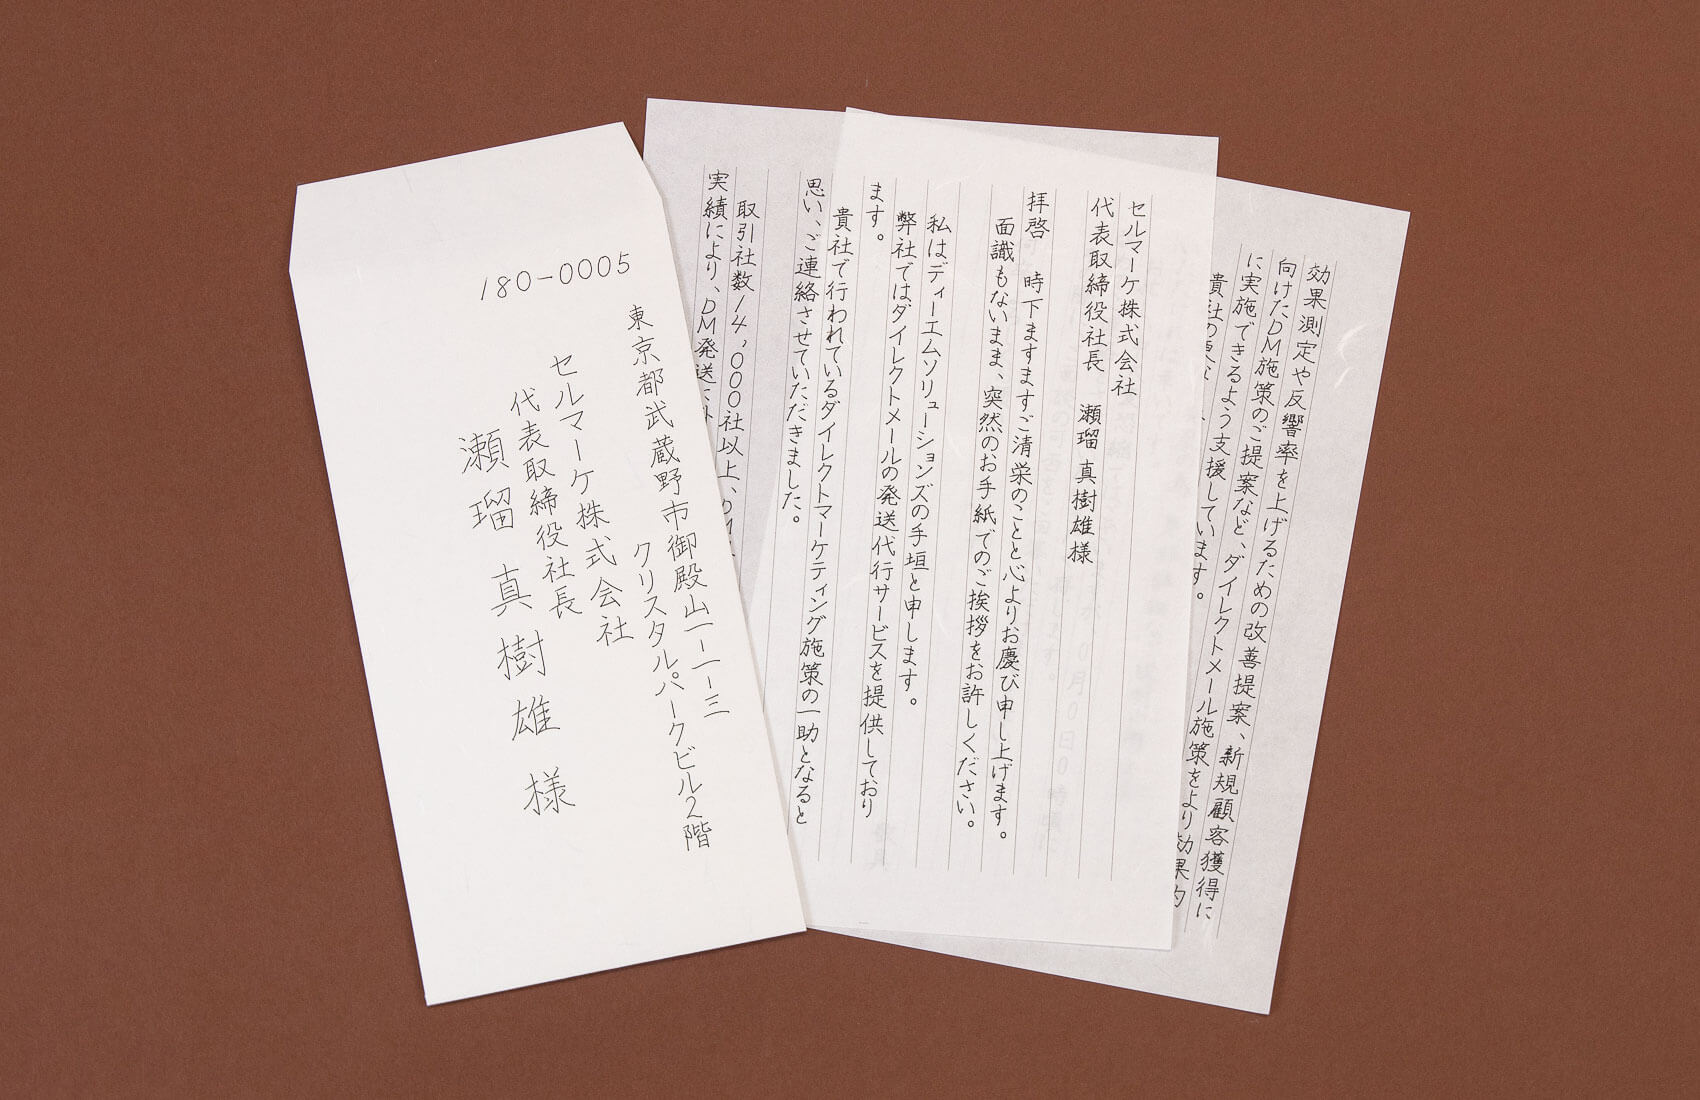 180-0005
東京都武蔵野市御殿山一-一-三
クリスタルパークビル2階
セルマーケ株式会社
代表取締役社長
瀬瑠 真樹雄 様
セルマーケ株式会社
代表取締役社長 瀬瑠 真樹雄様
拝啓 時下ますますご清栄のことと心よりお慶び申し上げます。
面識もないまま、突然のお手紙でのご挨拶をお許しください。
私はディーエムソリューションズの手垣と申します。
弊社ではダイレクトメールの発送代行サービスを提供しており
ます。
貴社で行われているダイレクトマーケティング施策の一助となると
思い、ご連絡させていただきました。
取引社数14,000社以上、
実績により、DM発送
効果測定や反響率を上げるための改善提案、新規顧客獲得に
向けたDM施策のご提案など、ダイレクトメール施策をより効果的
に実施できるよう支援しています。
貴社の